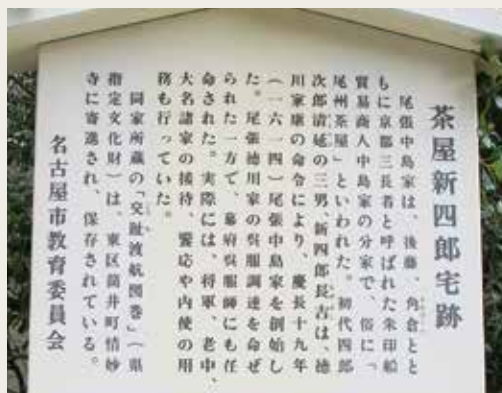 茶屋新四郎宅跡
尾張中島家は、後藤、角倉とと
もに京都三長者と呼ばれた朱印船
貿易商人中島家の分家で、俗に「
尾州茶屋」といわれた。初代四郎
次郎清延の三男、新四郎長吉は、徳
川家康の命令により、慶長十九年
(一六一四)尾張中島家を創始し
た。尾張徳川家の呉服調達を命ぜ
られた一方で、幕府呉服師にも任
命された。実際には、将軍、老中、
大名諸家の接待、饗応や内使の用
務も行っていた。
同家所蔵の「交趾渡航図巻」(県
指定文化財)は、東区筒井町情妙
寺に寄進され、保存されている。
名古屋市教育委員会